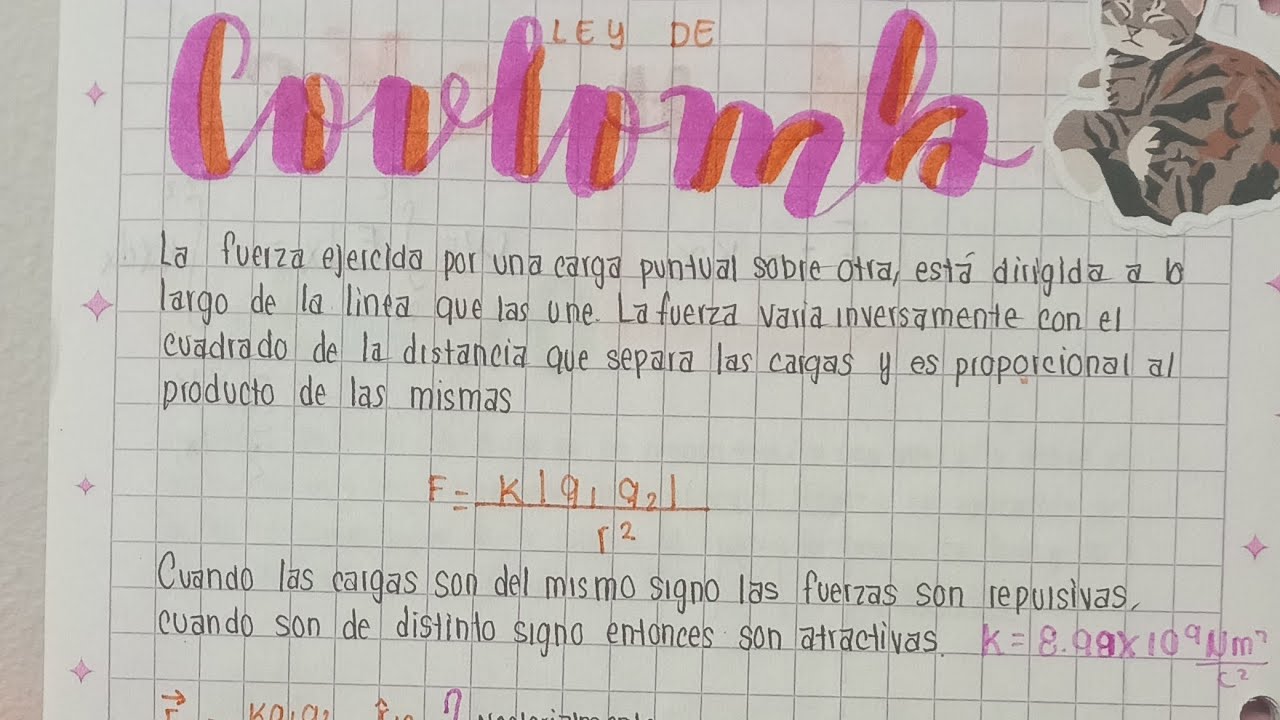 LEY DE
Coulomb
La fuerza ejercida por una carga puntual sobre otra, está dirigida a lo
largo de la linea que las une. La fuerza varia inversamente con el
cuadrado de la distancia que separa las cargas y es proporcional al
producto de las mismas
F = K|q₁ q₂|
r²
Cuando las cargas son del mismo signo las fuerzas son repulsivas,
cuando son de distinto signo entonces son atractivas. K = 8.99x10⁹ Nm²
C²